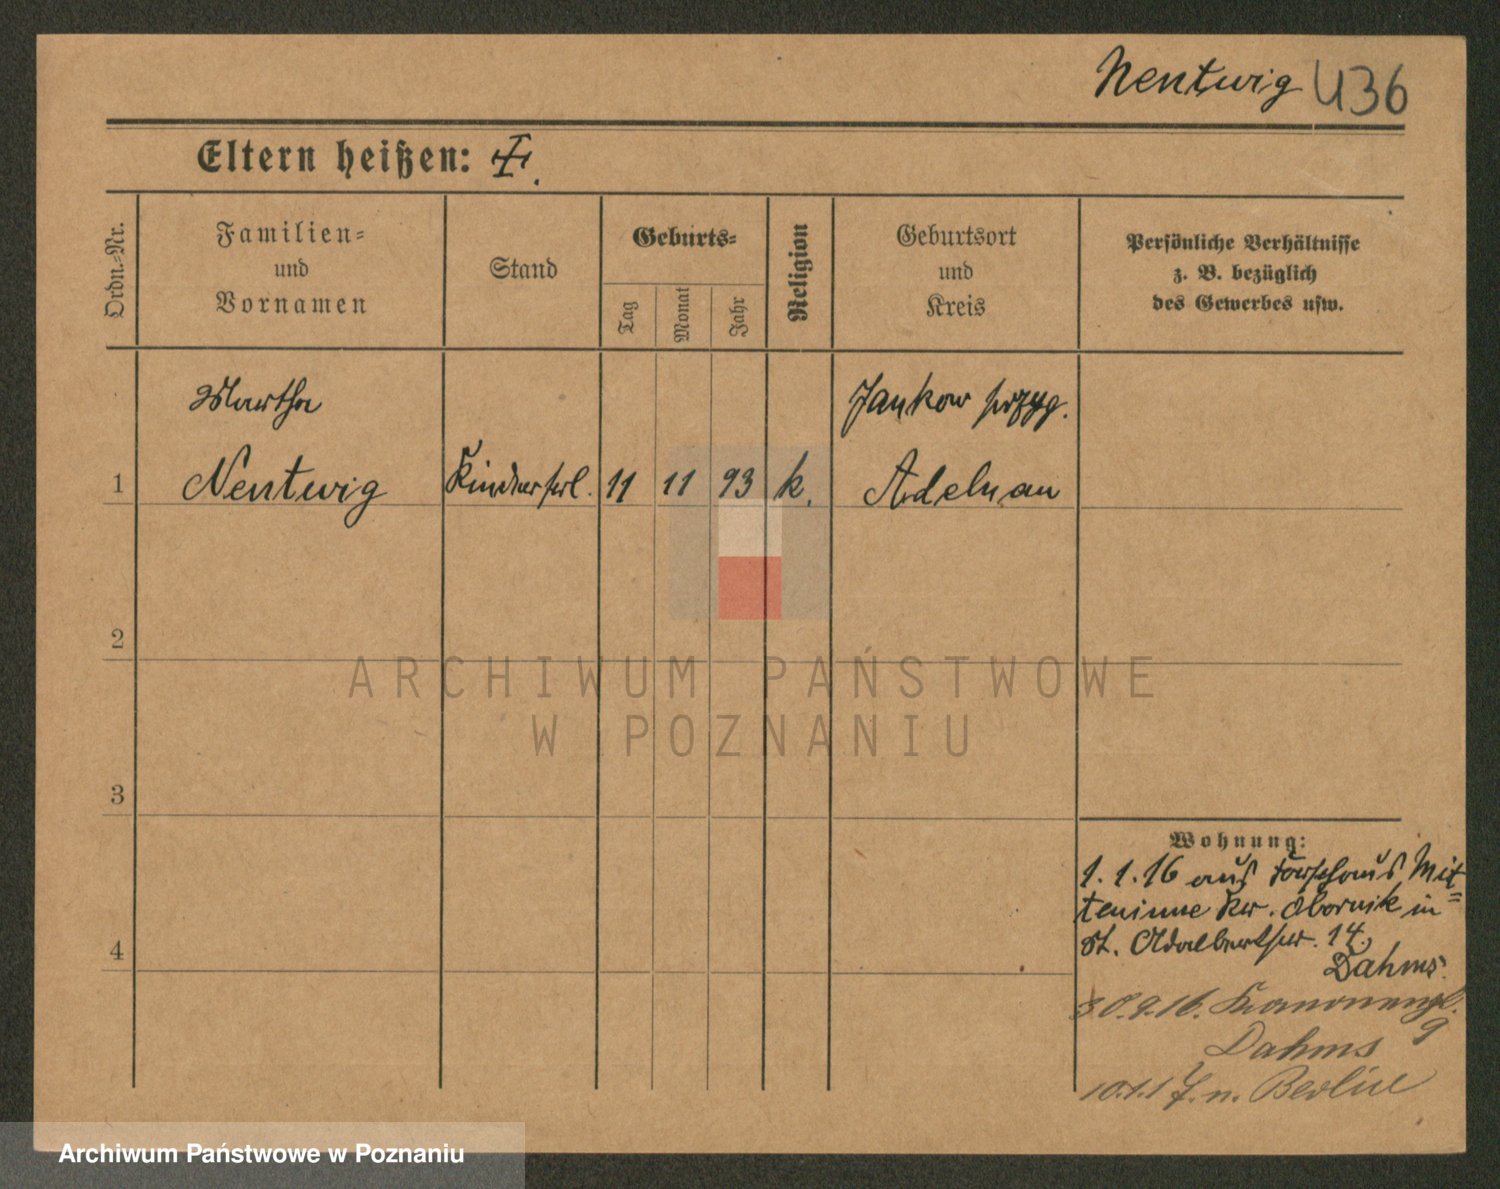 Nentwig U36
Eltern heißen: ‡.
Ordn.-Nr.
Familien-
und
Vornamen
Stand
Geburts-
Tag
Monat
Jahr
Religion
Geburtsort
und
Kreis
Persönliche Verhältnisse
z. B. bezüglich
des Gewerbes usw.
Martha
Jankow przyg.
1 Nentwig Kinderfrl. 11 11 93 k. Adelnau
2
3
4
ARCHIWUM PAŃSTWOWE
W POZNANIU
Wohnung:
1.1.16 aus Forsthaus Mit-
teninne Kr. Obornik in
St. Adalbertstr. 14.
Dahms.
30.9.16. Kanonenpl.
9
Dahms
10.1.17. n. Berlin
Archiwum Państwowe w Poznaniu